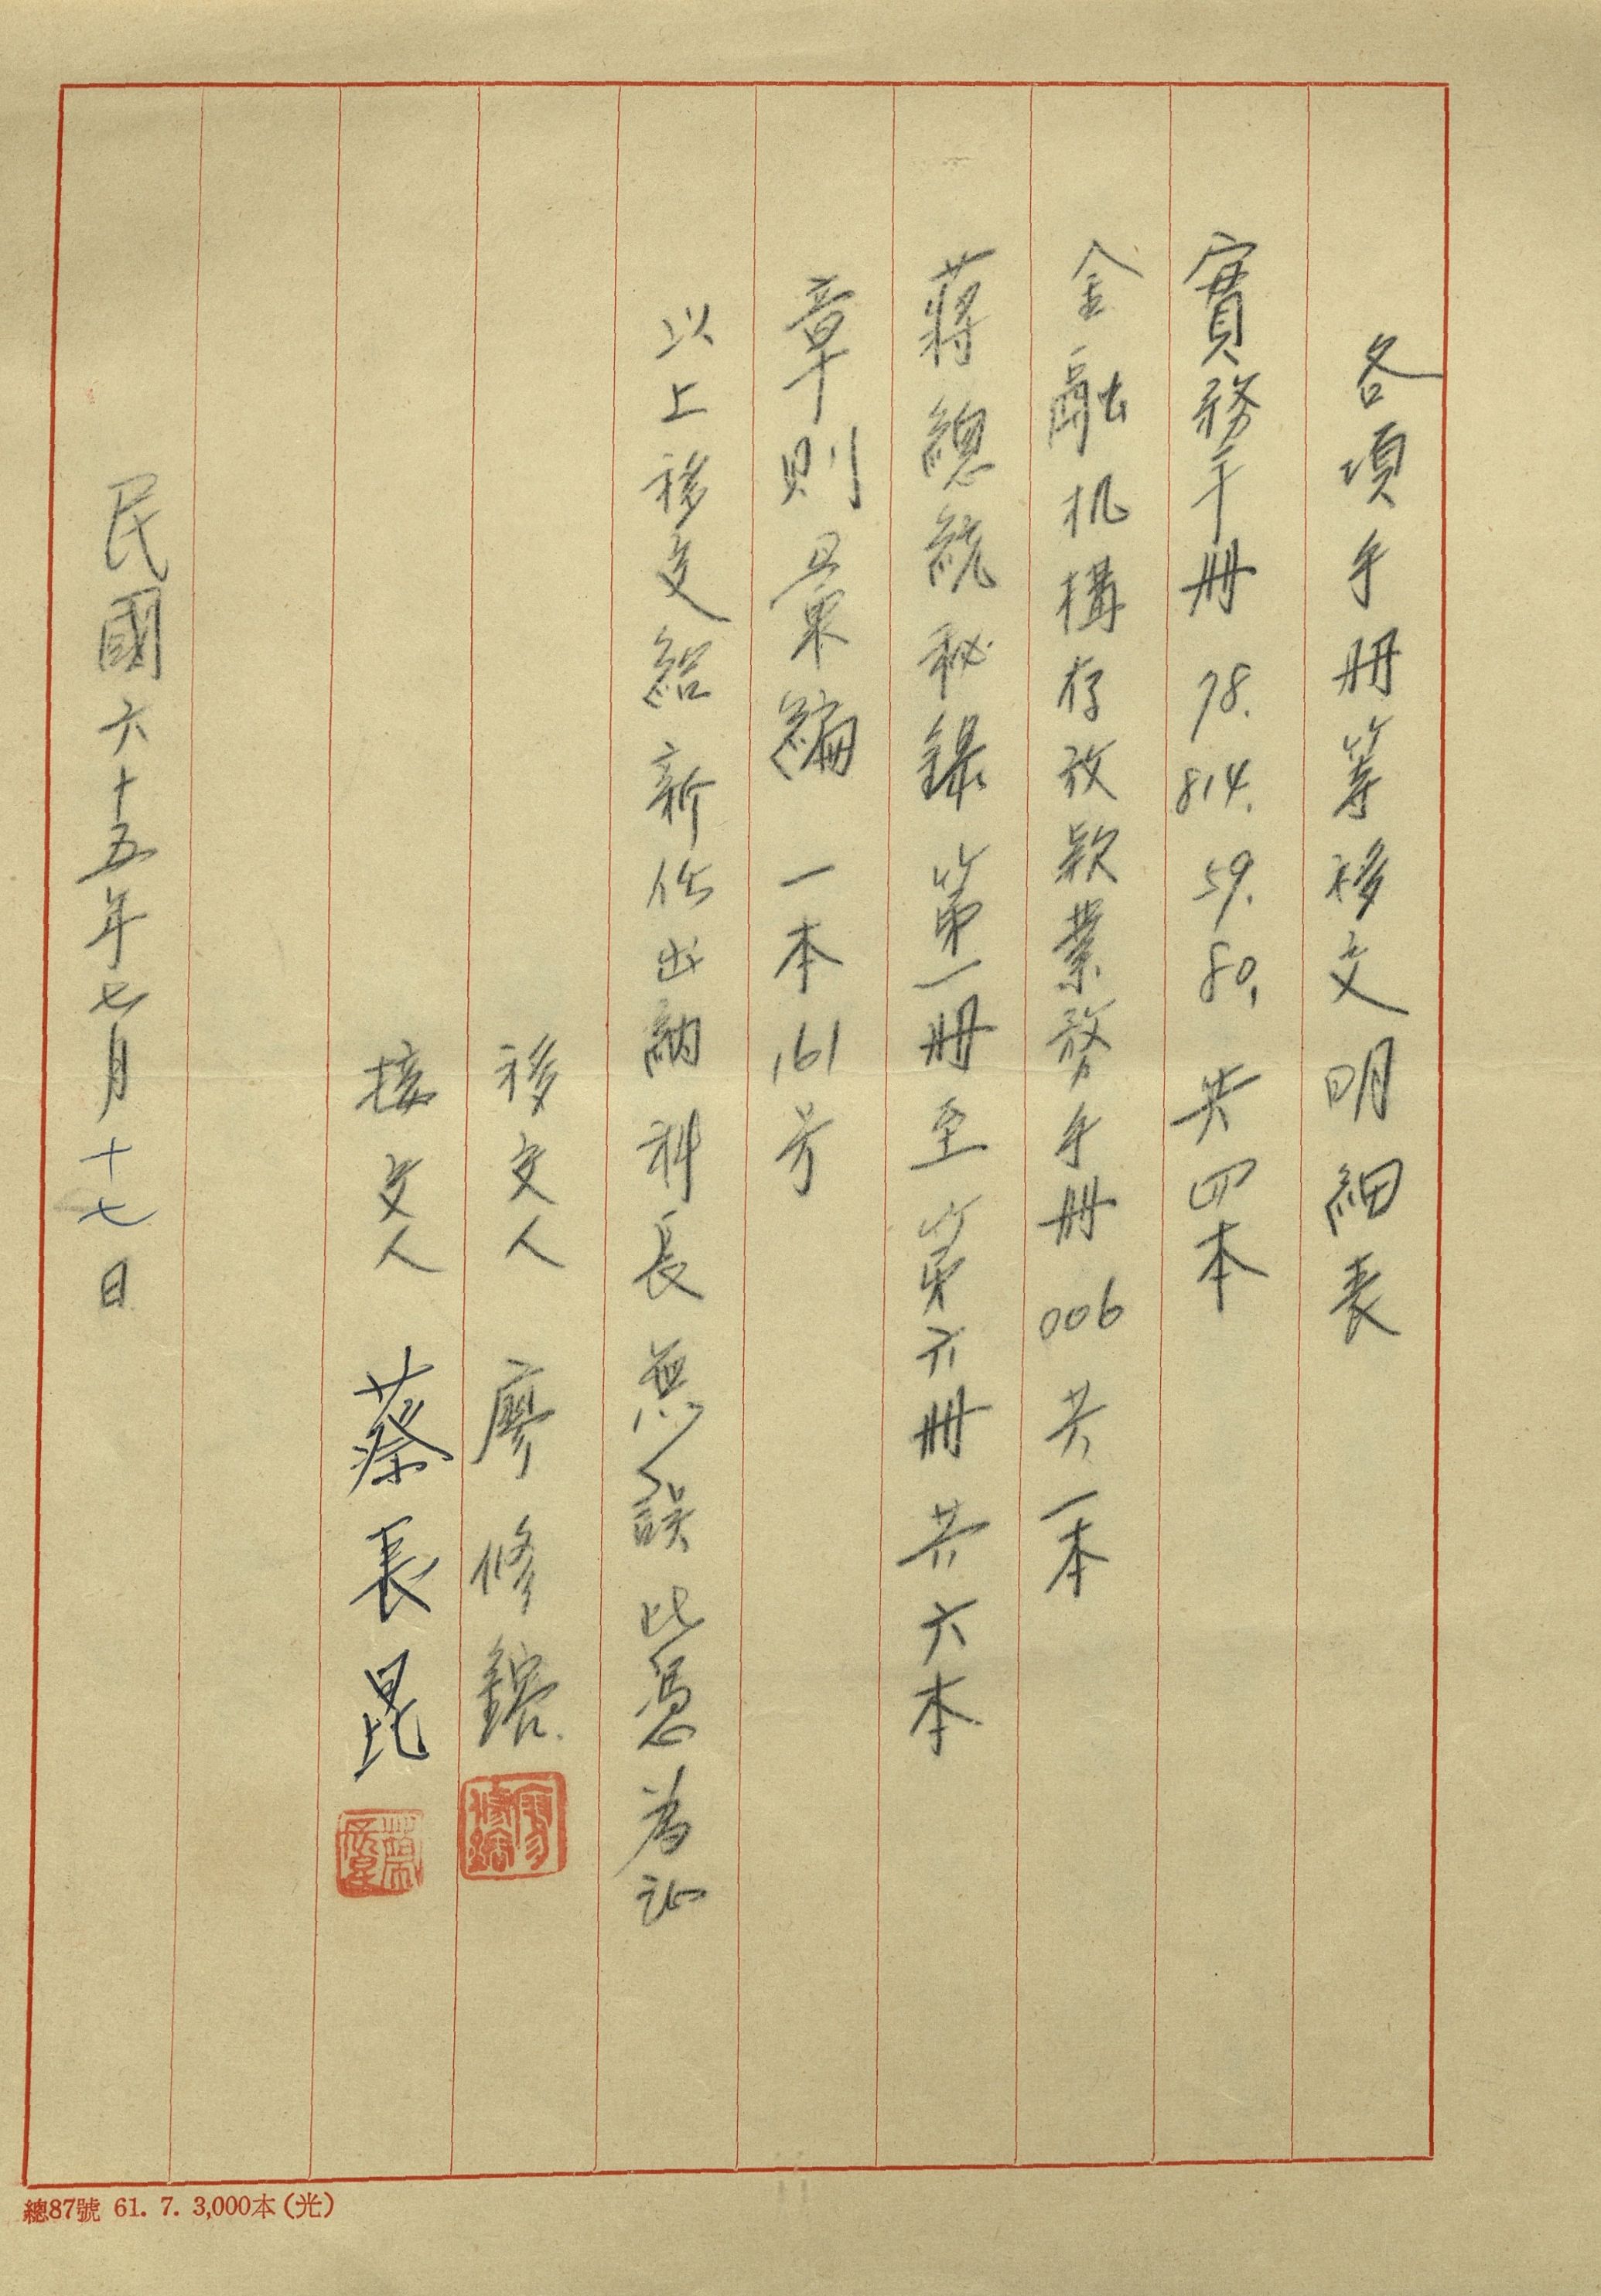 各項手冊等移交明細表
實務手冊 78. 814. 59. 80. 共四本
金融机構存放款業務手冊 006 共一本
蔣總統秘錄第一冊至第六冊共六本
章則彙編 一本 161号
以上移交給新任出納科長無誤此憑為証
移交人 廖修鎔
接交人 蔡長昆
民國六十五年七月十七日
總87號 61. 7. 3,000本(光)